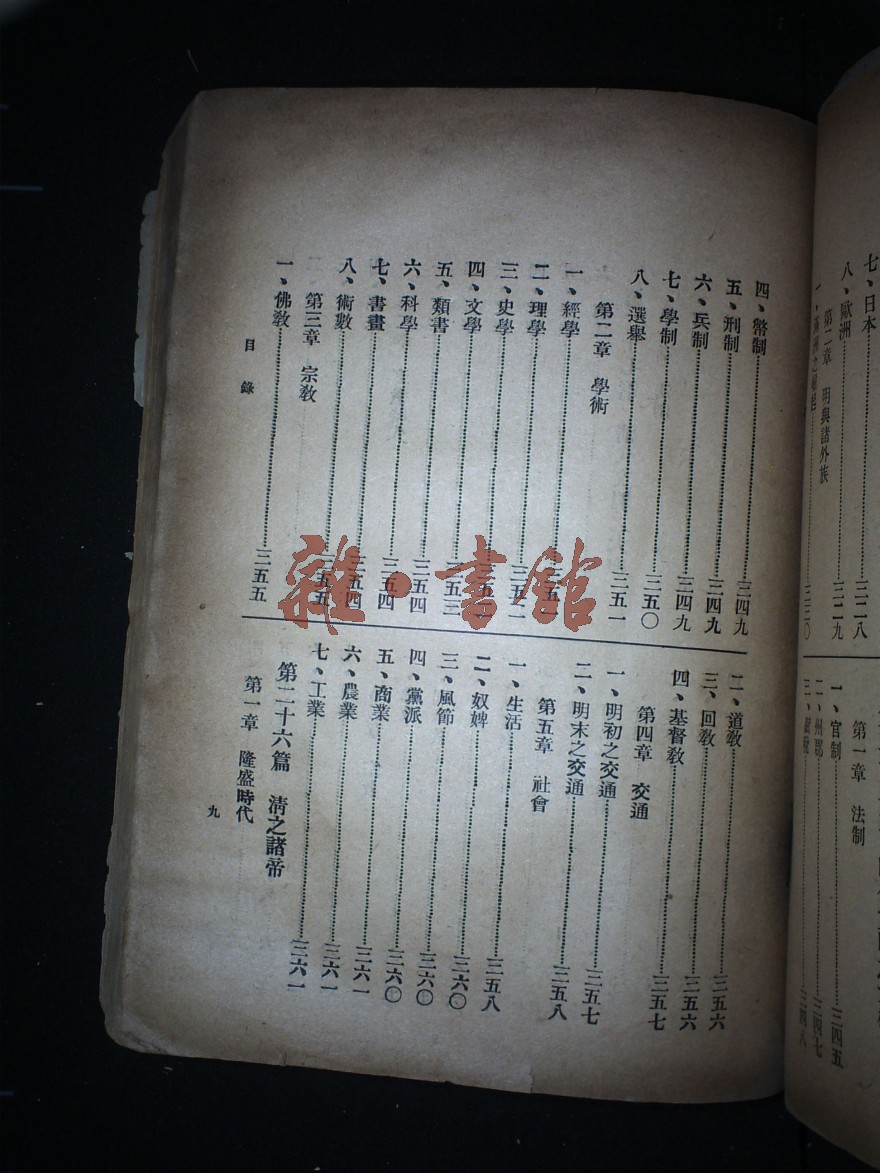 七、日本……三二八
八、歐洲……三二九
第二章 明與諸外族
三三〇
第一章 法制
一、官制……三四五
二、州郡……三四七
三四八
四、幣制……三四九
五、刑制……三四九
六、兵制……三四九
七、學制……三五〇
八、選舉……三五一
第二章 學術
一、經學
二、理學
三、史學
四、文學
五、類書……三五三
六、科學……三五四
七、書畫……三五四
八、術數
第三章 宗教
一、佛教……三五五
二、道教……三五六
三、回教……三五六
四、基督教……三五七
第四章 交通
一、明初之交通……三五七
二、明末之交通……三五八
第五章 社會
一、生活……三五八
二、奴婢……三六〇
三、風節……三六〇
四、黨派……三六〇
五、商業……三六一
六、農業……三六一
七、工業……三六一
第二十六篇 清之諸帝
第一章 隆盛時代
目錄
九
雜·書館